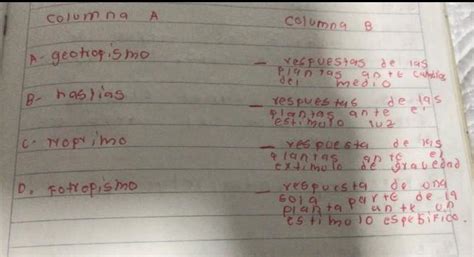 Columna A
Columna B
A- geotropismo
— respuestas de las
plantas ante cambios
del medio
B- nastias
— respuestas de las
plantas ante el
estimolo luz
C- Troprimo
— respuesta de las
plantas ante el
extimolo de gravedad
D. Fotropismo
— respuesta de una
sola parte de la
planta ante un
estimulo espesifico.